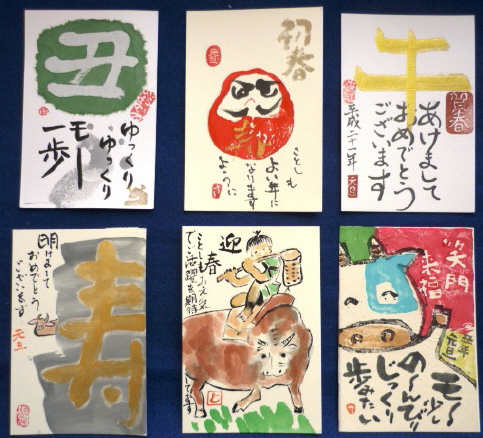 丑
ゆっくり
ゆっくり
モー
一歩
初春
ことしも
よい年に
なります
ように
賀春
あけまして
おめでとう
ございます
平成二十一年
元旦
明けまして
おめでとう
ございます
元旦
寿
迎春
ことしも
ご活躍を期待
してます
笑門
来福
丑年
元旦
モ〜少し
の〜んびり
じっくり
歩みたい